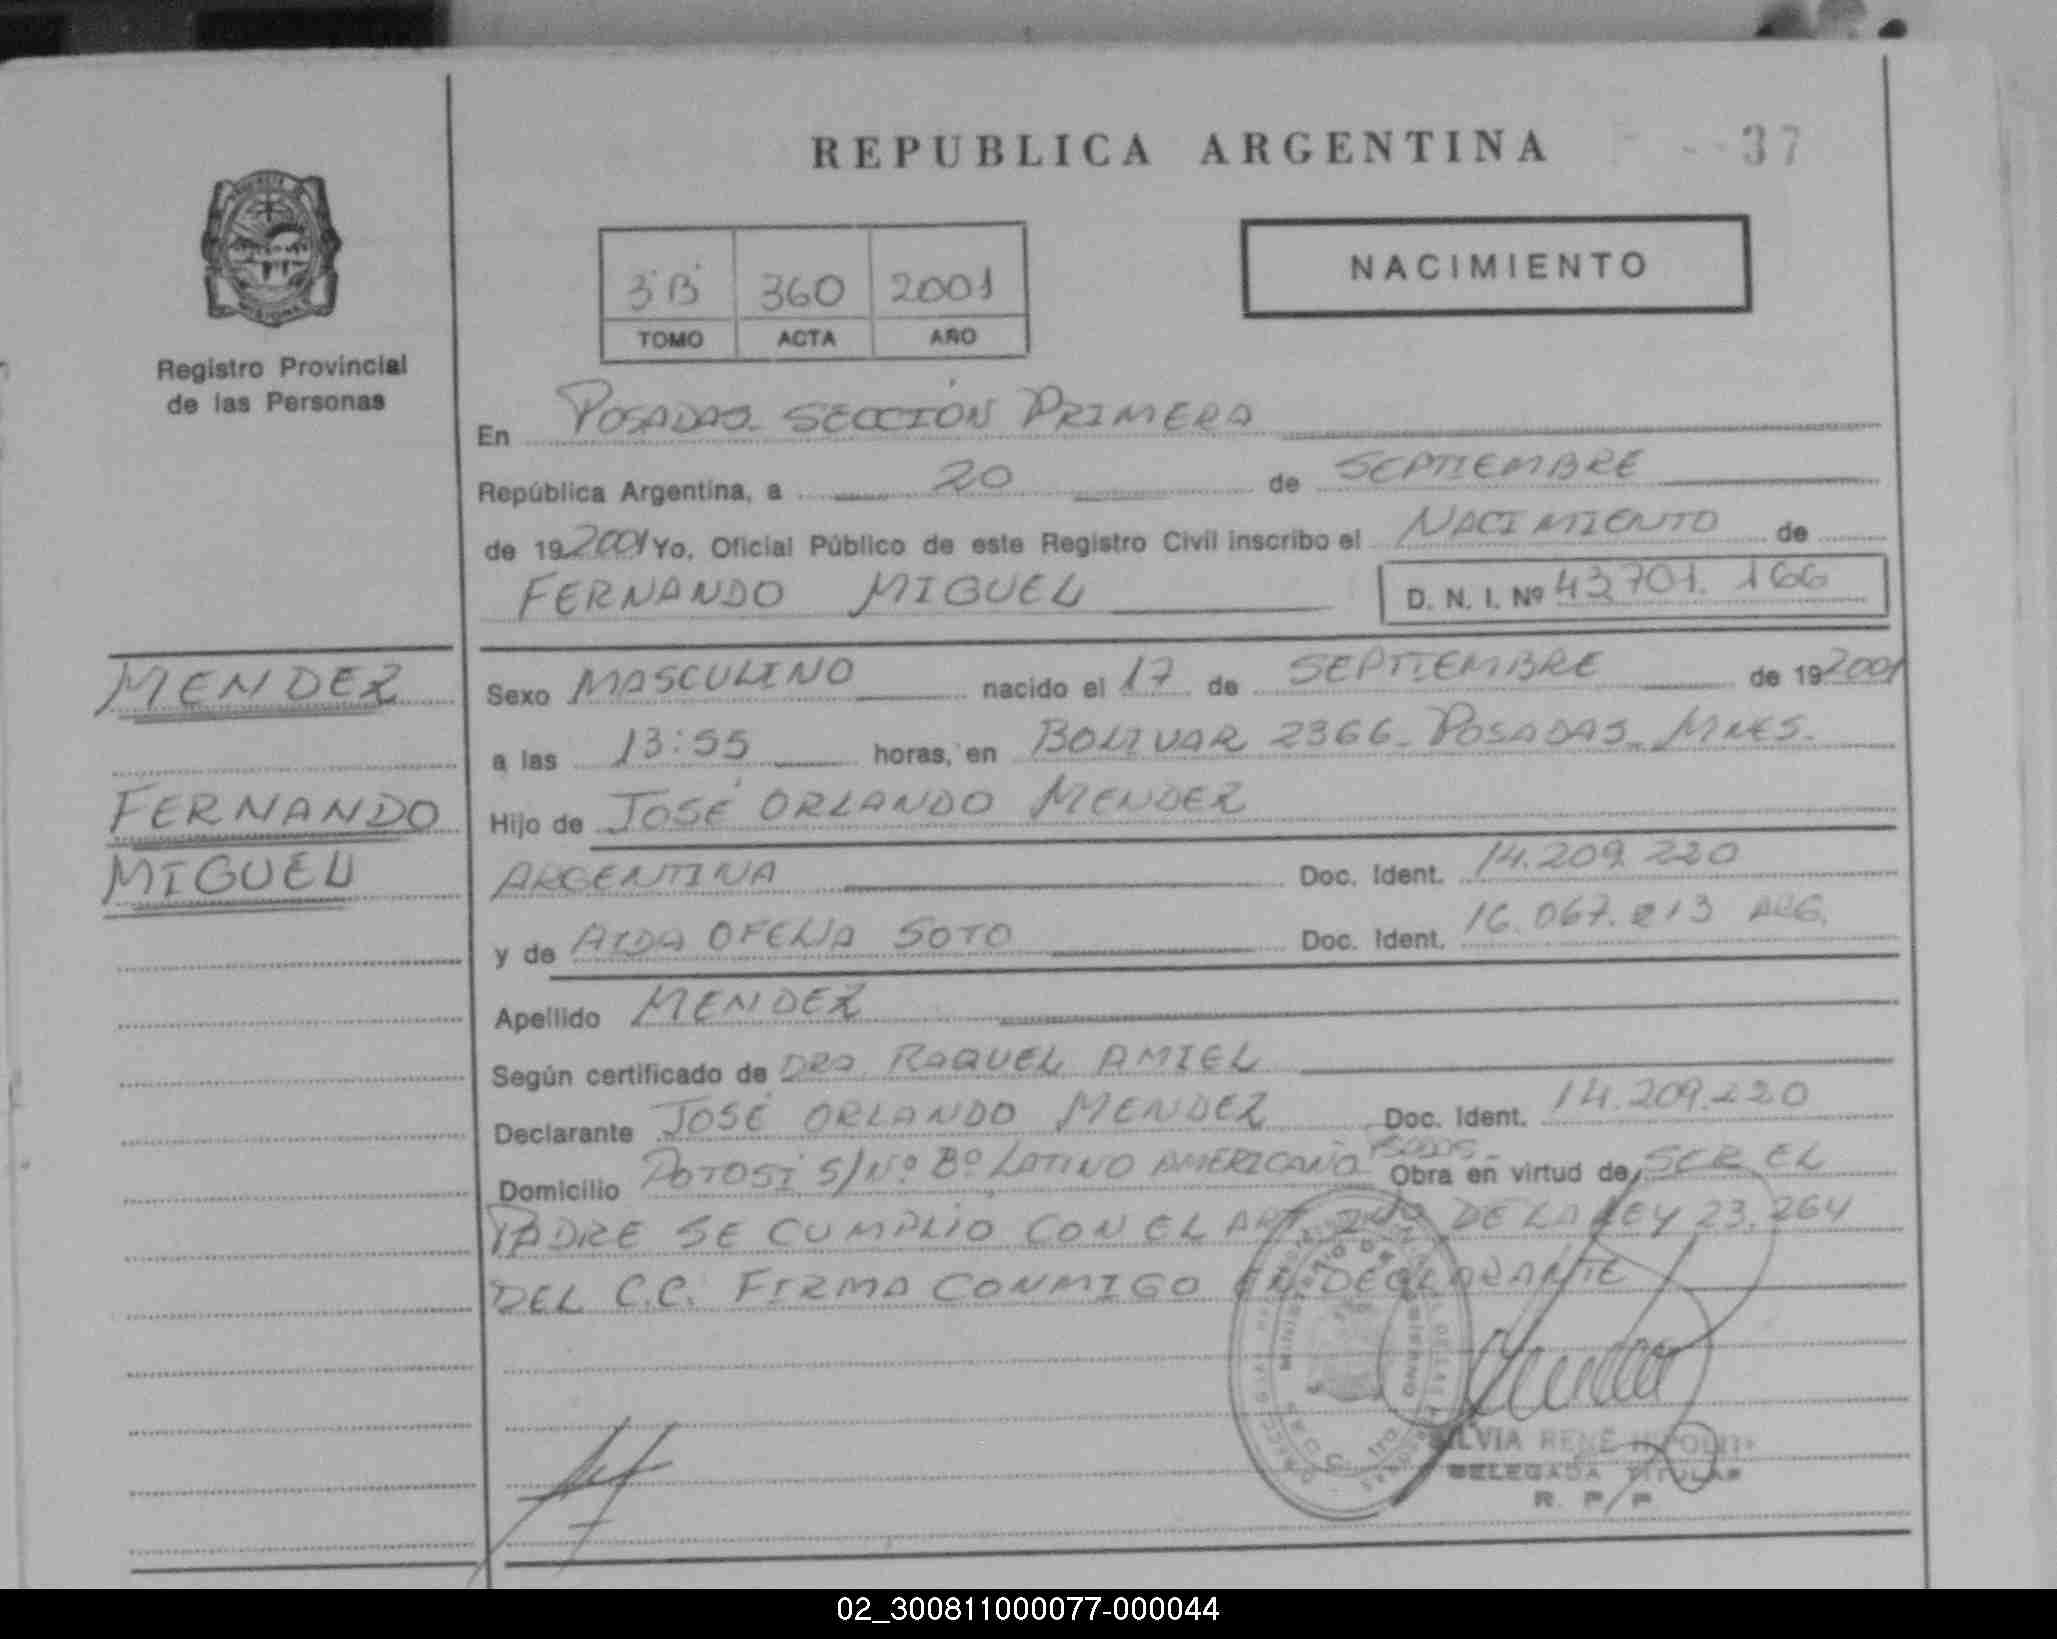 REPUBLICA ARGENTINA
37
3 "B" 360 2001
TOMO ACTA AÑO
NACIMIENTO
Registro Provincial
de las Personas
En POSADAS - SECCIÓN PRIMERA
República Argentina, a 20 de SEPTIEMBRE
de 19 2001 Yo, Oficial Público de este Registro Civil inscribo el NACIMIENTO de
FERNANDO MIGUEL D. N. I. Nº 43.701.166
MENDEZ
FERNANDO
MIGUEL
Sexo MASCULINO nacido el 17 de SEPTIEMBRE de 19 2001
a las 13:55 horas, en BOLIVAR 2366 - POSADAS - MNES.
Hijo de JOSÉ ORLANDO MENDEZ
ARGENTINA Doc. Ident. 14.209.220
y de AIDA OFELIA SOTO Doc. Ident. 16.067.213 ARG.
Apellido MENDEZ
Según certificado de DRA. RAQUEL AMIEL
Declarante JOSÉ ORLANDO MENDEZ Doc. Ident. 14.209.220
Domicilio POTOSI S/Nº Bº LATINO AMERICANO Obra en virtud de SER EL
PADRE SE CUMPLIO CON EL ART 240 DE LA LEY 23.264
DEL C.C. FIRMA CONMIGO EL DECLARANTE
SILVIA RENÉ
DELEGADA TITULAR
R. P. P.
02_300811000077-000044